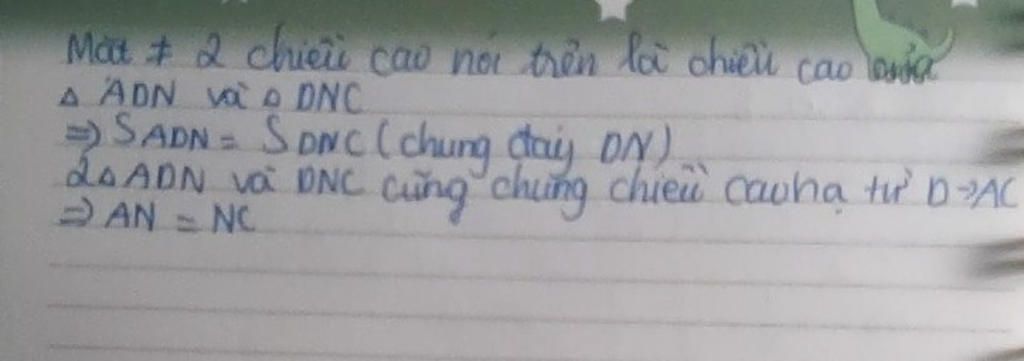 Mặt ≠ 2 chiều cao nói trên là chiều cao của
△ ADN và △ DNC
=> SADN = SDNC (chung đáy DN)
2△ ADN và DNC cũng chung chiều cao hạ từ D->AC
=> AN = NC